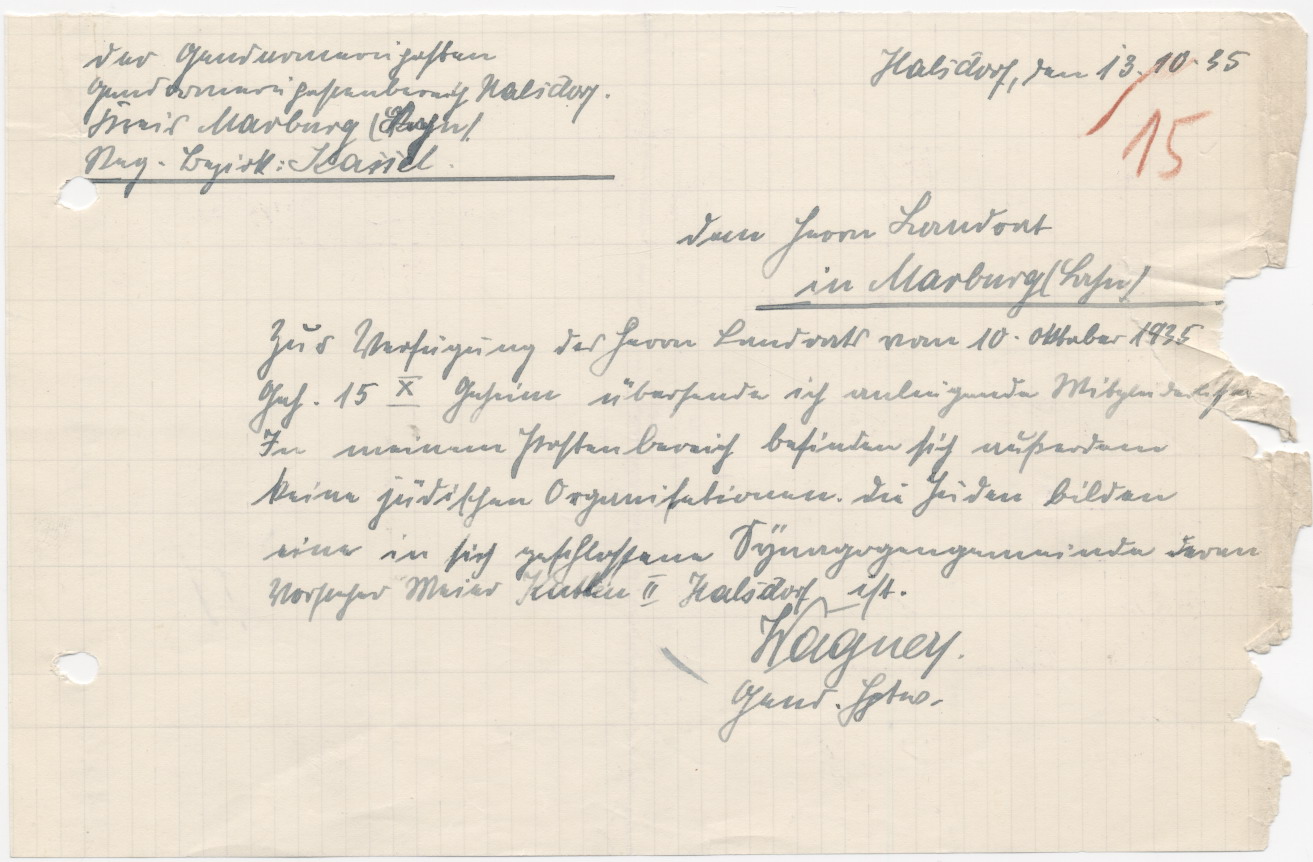 Der Gendarmerieposten
Gendarmeriepostenbereich Halsdorf.
Kreis Marburg (Lahn)
Reg. Bezirk: Kassel.
Halsdorf, den 13.10.35
15
Dem Herrn Landrat
in Marburg (Lahn)
Zur Verfügung des Herrn Landrats vom 10. Oktober 1935
Geh. 15 X Geheim übersende ich anliegende Mitgliederliste
In meinem Postenbereich befinden sich außerdem
keine jüdischen Organisationen. Die Juden bilden
eine in sich geschlossene Synagogengemeinde deren
Vorsteher Meier Katten II Halsdorf ist.
Wagner.
Gend. Hptw.